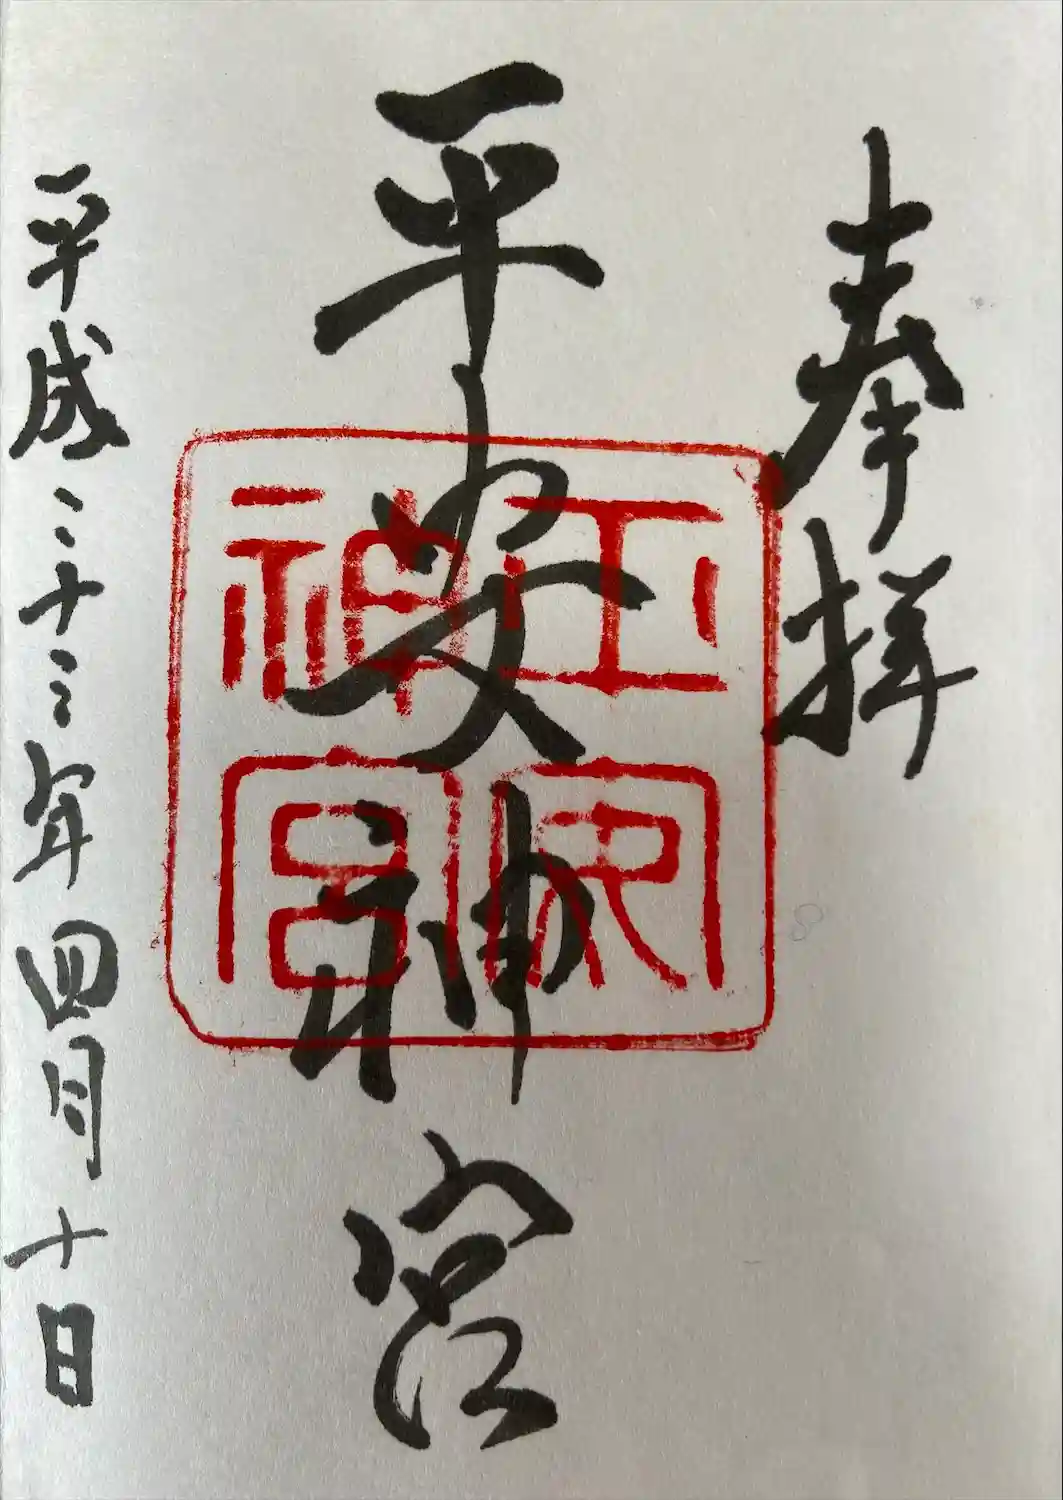 奉拝
平安神宮
平安
神宮
平成三十三年四月十日